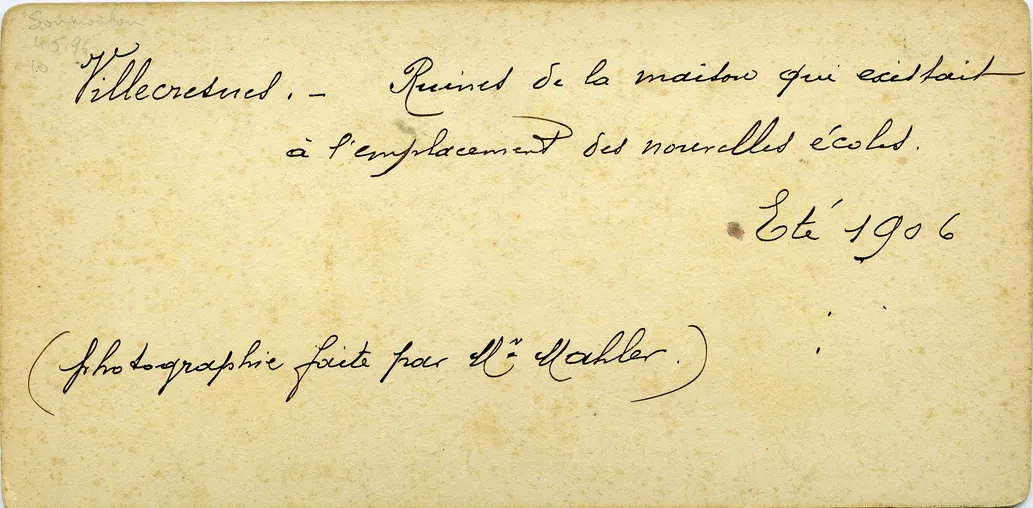 Villecresnes. - Ruines de la maison qui existait
à l'emplacement des nouvelles écoles.
Eté 1906
(photographie faite par Mr Mahler.)